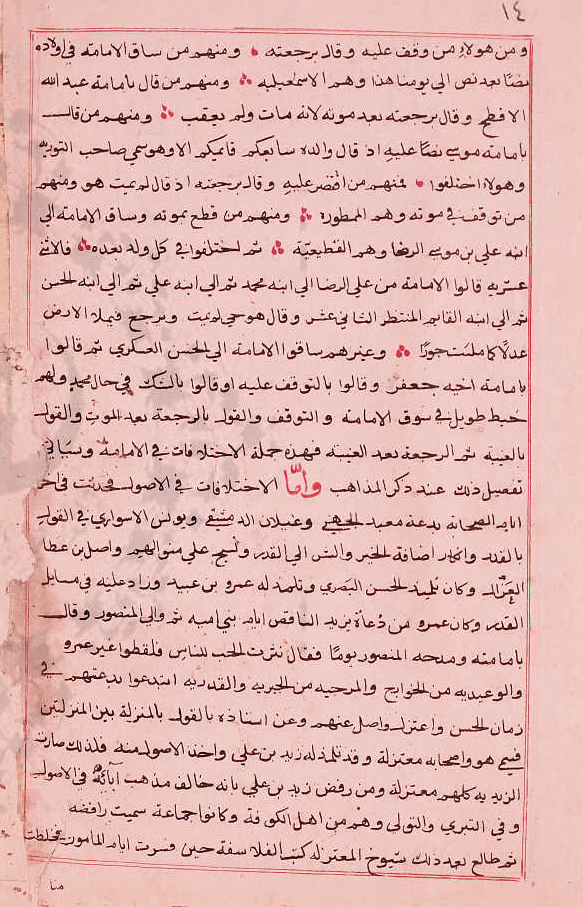 ١٤
ومن هولاء من وقف عليه وقال برجعته ومنهم من ساق الامامة في اولاده
نصًا بعد نص الي يومنا هذا وهم الاسمعيليه ومنهم من قال بامامة عبد الله
الافطح وقال برجعته بعد موته لانه مات ولم يعقب ومنهم من قال
بامامة موسي نصًا عليه اذ قال والده سابعكم قايمكم الا وهو سمي صاحب التوريه
وهولاء اختلفوا فمنهم من اقتصر عليه وقال برجعته اذ قال لم يمت هو ومنهم
من توقف في موته وهم الممطوره ومنهم من قطع بموته وساق الامامة الي
ابنه علي بن موسي الرضا وهم القطيعيّة ثم اختلفوا في كل ولد بعده فالاثني
عشريه قالوا الامامة من علي الرضا الي ابنه محمد ثم الي ابنه علي ثم الي ابنه الحسن
ثم الي ابنه القايم المنتظر الثاني عشر وقال هو حي لم يمت ويرجع فيملا الارض
عدلًا كما ملئت جورًا وغيرهم ساقوا الامامة الي الحسن العسكري ثم قالوا
بامامة اخيه جعفر وقالوا بالتوقف عليه او قالوا بالشك في حال محمد ولهم
خبط طويل في سوق الامامة والتوقف والقول بالرجعة بعد الموت والقول
بالغيبة ثم الرجعة بعد الغيبة فهذه جملة الاختلافات في الامامة وسياتي
تفصيل ذلك عند ذكر المذاهب وامّا الاختلافات في الاصول فحدثت في اخر
ايام الصحابة بدعة معبد الجهني وغيلان الدمشقي ويونس الاسواري في القول
بالقدر وانكار اضافة الخير والشر الي القدر ونسج علي منوالهم واصل بن عطا
الغزّال وكان تلميذ الحسن البصري وتلمذ له عمرو بن عبيد وزاد عليه في مسايل
القدر وكان عمرو من دعاة يزيد الناقص ايام بني اميه ثم والي المنصور وقال
بامامته ومدحه المنصور يومًا فقال نثرت الحب للناس فلقطوا غير عمرو
والوعيديه من الخوارج والمرجيه من الجبريه والقدريه ابتدعوا بدعتهم في
زمان الحسن واعتزل واصل عنهم وعن استاذه بالقول بالمنزلة بين المنزلتين
فسمي هو واصحابه معتزلة وقد تلمذ له زيد بن علي واخذ الاصول منه فلذلك صارت
الزيديه كلهم معتزلة ومن رفض زيد بن علي بانه خالف مذهب آبائه في الاصول
وفي التبري والتولي وهم من اهل الكوفة وكانوا جماعة سميت رافضه
ثم طالع بعد ذلك شيوخ المعتزله كتب الفلاسفة حين فسرت ايام المامون فخلطت
منا